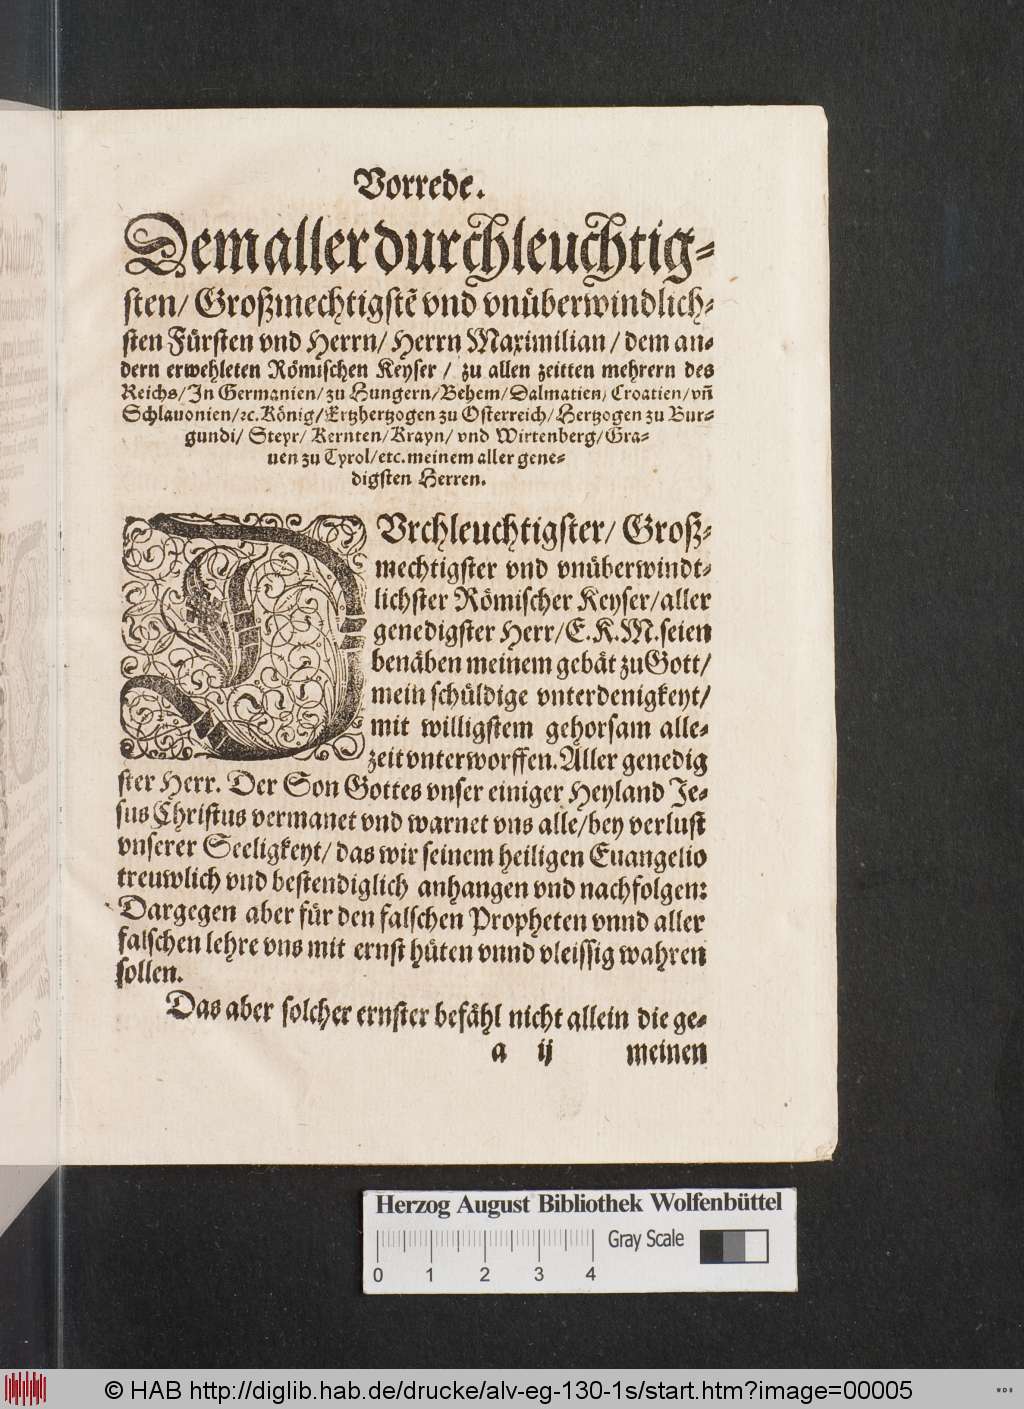 Vorrede.
Dem aller durchleuchtig-
sten/ Großmechtigstē vnd vnüberwindlich-
sten Fürsten vnd Herrn/ Herrn Maximilian/ dem an-
dern erwehleten Römischen Keyser/ zu allen zeitten mehrern des
Reichs/ In Germanien/ zu Hungern/ Behem/ Dalmatien/ Croatien/ vñ
Schlauonien/ ꝛc. König/ Ertzhertzogen zu Osterreich/ Hertzogen zu Bur-
gundi/ Steyr/ Kernten/ Krayn/ vnd Wirtenberg/ Gra-
uen zu Tyrol/ etc. meinem aller gene-
digsten Herren.
DVrchleuchtigster/ Groß-
mechtigster vnd vnüberwindt-
lichster Römischer Keyser/ aller
genedigster Herr/ E. K. M. seien
benäben meinem gebät zu Gott/
mein schüldige vnterdenigkeyt/
mit willigstem gehorsam alle-
zeit vnterworffen. Aller genedig
ster Herr. Der Son Gottes vnser einiger Heyland Je-
sus Christus vermanet vnd warnet vns alle/ bey verlust
vnserer Seeligkeyt/ das wir seinem heiligen Euangelio
treuwlich vnd bestendiglich anhangen vnd nachfolgen:
Dargegen aber für den falschen Propheten vnnd aller
falschen lehre vns mit ernst hüten vnnd vleissig wahren
sollen.
Das aber solcher ernster befähl nicht allein die ge-
a ij meinen
Herzog August Bibliothek Wolfenbüttel
Gray Scale
0 1 2 3 4
© HAB http://diglib.hab.de/drucke/alv-eg-130-1s/start.htm?image=00005